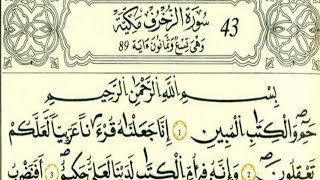 سورة الزخرف مكية 43
وهى تسع وثمانون ماية 89
بِسْمِ اللَّهِ الرَّحْمَٰنِ الرَّحِيمِ
حٰمٓ وَالْكِتٰبِ الْمُبِينِ ۝١ إِنَّا جَعَلْنٰهُ قُرْءٰنًا عَرَبِيًّا لَعَلَّكُمْ
تَعْقِلُونَ ۝٢ وَإِنَّهُ فِىٓ أُمِّ الْكِتٰبِ لَدَيْنَا لَعَلِىٌّ حَكِيمٌ ۝٣ أَفَنَضْرِبُ